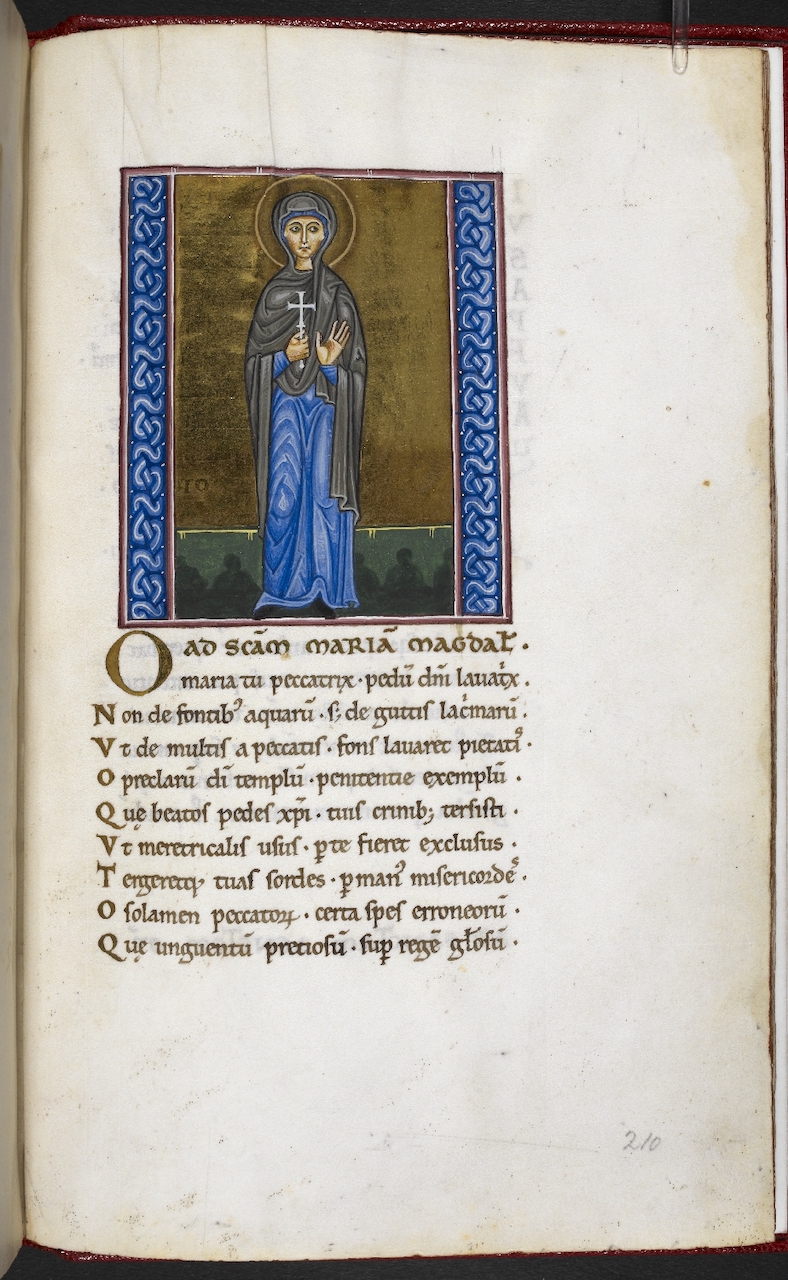 AD SCĀM MARIĀ MAGDAŁ.
O maria tu peccatrix · pedū dn̄i lauat͛x .
Non de fontibꝰ aquarū · s; de guttis lac͛marū .
Vt de multis a peccatis · fons lauaret pietatiꝰ ·
O preclarū di̅ templū · penitentie exemplū .
Quę beatos pedes xp̄i · tuis crinib; tersisti .
Vt meretricalis usus · ꝑ te fieret exclusus ·
Tergeretq; tuas sordes · ꝑ manꝰ misericordeꝰ ·
O solamen peccatoꝝ · certa spes erroneorū ·
Quę unguentū pretiosū · suꝑ regē gło̅sū ·
210